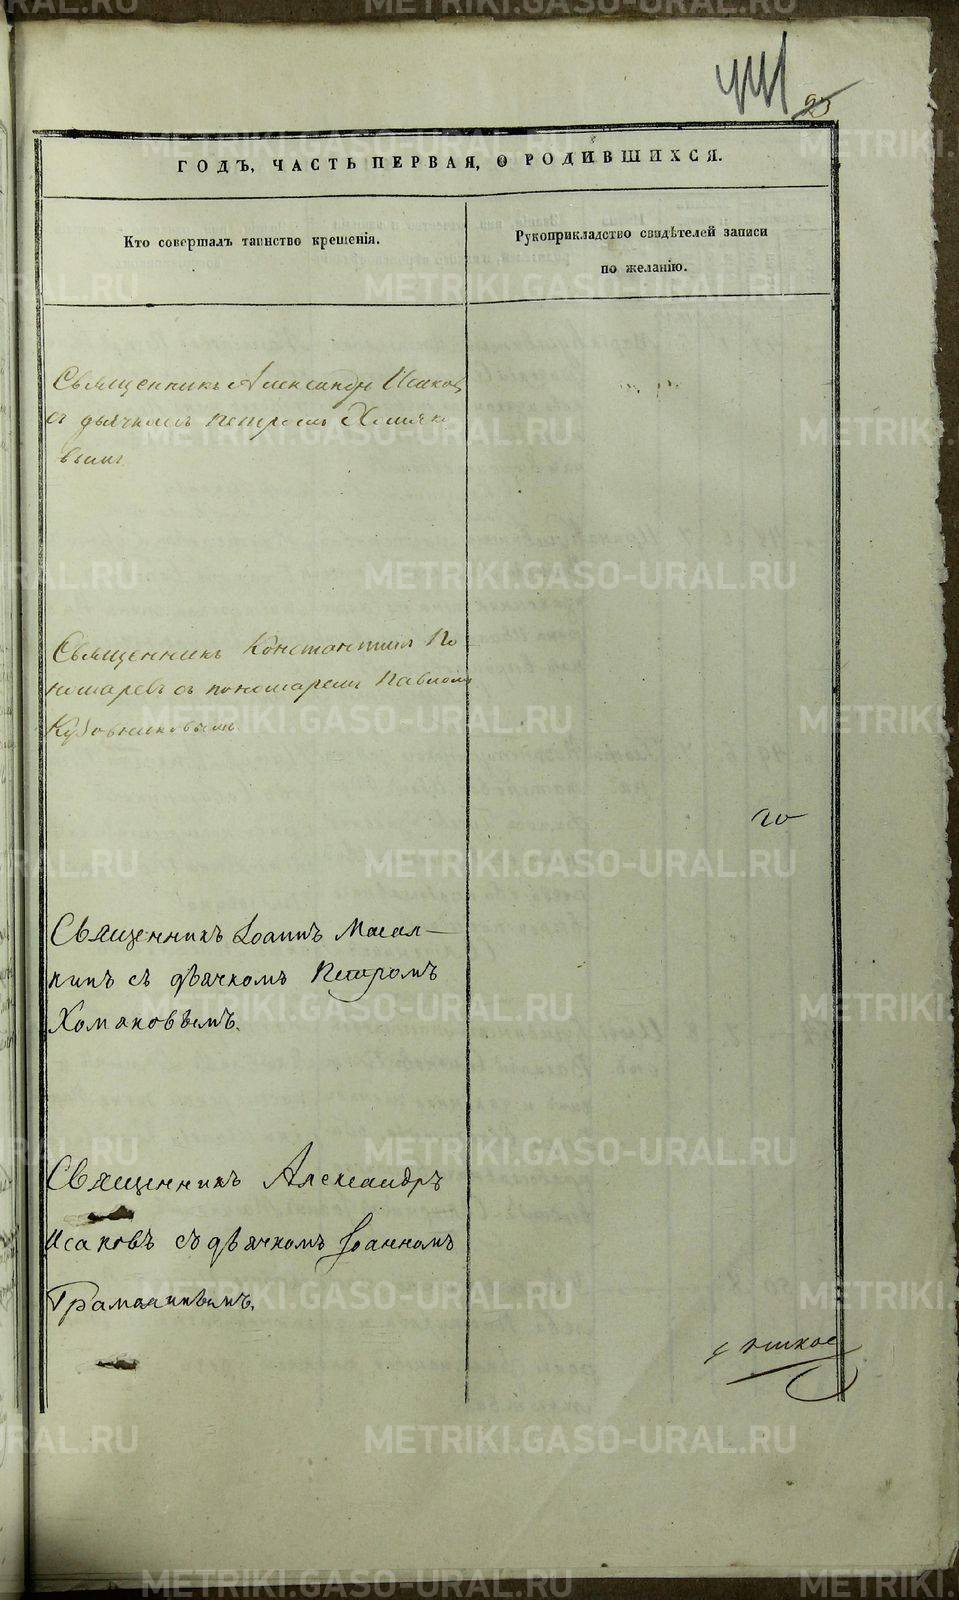 25
ГОДЪ, ЧАСТЬ ПЕРВАЯ, О РОДИВШИХСЯ.
Кто совершалъ таинство крещенія.
Рукоприкладство свидѣтелей записи
по желанію.
Священникъ Александръ Исаковъ
съ дьячкомъ Петромъ Хомяко
вымъ
Священникъ Константинъ По
номаревъ съ пономаремъ Павломъ
Кузовниковымъ
Священникъ Іоаннъ Масал-
кинъ съ дьячкомъ Петромъ
Хомяковымъ.
Священникъ Александръ
Исаковъ съ дьячкомъ Іоанномъ
METRIKI.GASO-URAL.RU